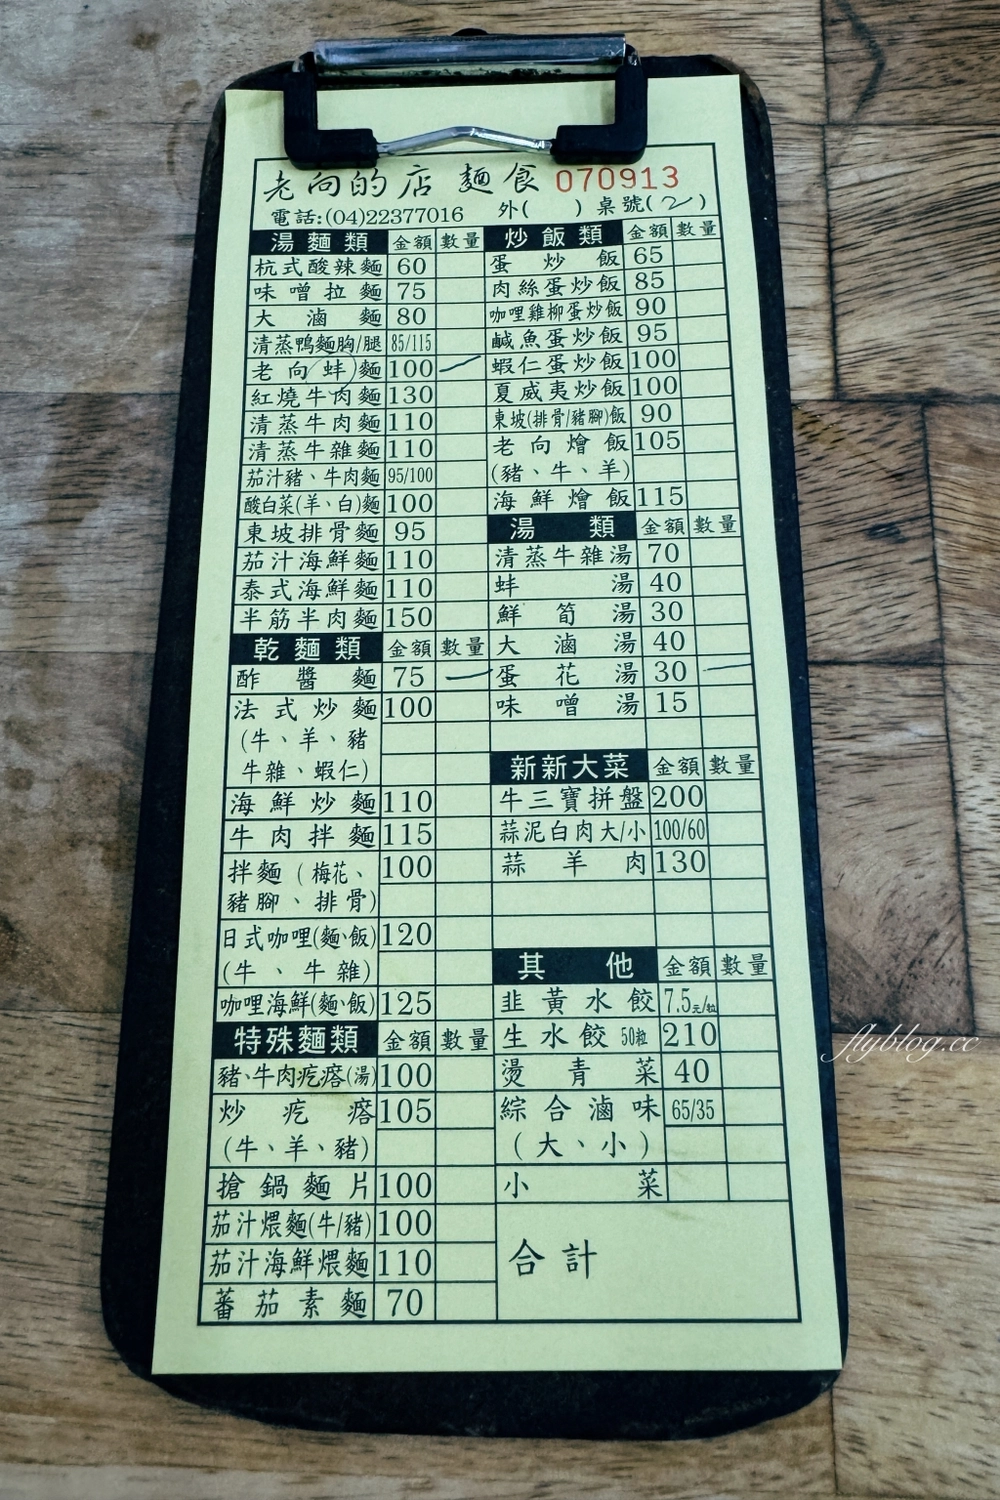 老向的店 麵食 070913
電話:(04)22377016 外( ) 桌號(2)
湯麵類 金額 數量
杭式酸辣麵 60
味噌拉麵 75
大滷麵 80
清蒸鴨麵胸/腿 85/115
老向蚌麵 100 一
紅燒牛肉麵 130
清蒸牛肉麵 110
清蒸牛雜麵 110
茄汁豬、牛肉麵 95/100
酸白菜(羊、白)麵 100
東坡排骨麵 95
茄汁海鮮麵 110
泰式海鮮麵 110
半筋半肉麵 150
乾麵類 金額 數量
酢醬麵 75 一
法式炒麵 100
(牛、羊、豬
牛雜、蝦仁)
海鮮炒麵 110
牛肉拌麵 115
拌麵(梅花、 100
豬腳、排骨)
日式咖哩(麵、飯) 120
(牛、牛雜)
咖哩海鮮(麵、飯) 125
特殊麵類 金額 數量
豬、牛肉疙瘩(湯) 100
炒疙瘩 105
(牛、羊、豬)
搶鍋麵片 100
茄汁煨麵(牛/豬) 100
茄汁海鮮煨麵 110
蕃茄素麵 70
炒飯類 金額 數量
蛋炒飯 65
肉絲蛋炒飯 85
咖哩雞柳蛋炒飯 90
鹹魚蛋炒飯 95
蝦仁蛋炒飯 100
夏威夷炒飯 100
東坡(排骨/豬腳)飯 90
老向燴飯 105
(豬、牛、羊)
海鮮燴飯 115
湯類 金額 數量
清蒸牛雜湯 70
蚌湯 40
鮮筍湯 30
大滷湯 40
蛋花湯 30 一
味噌湯 15
新新大菜 金額 數量
牛三寶拼盤 200
蒜泥白肉大/小 100/60
蒜羊肉 130
其他 金額 數量
韭黃水餃 7.5元/粒
生水餃 50粒 210
燙青菜 40
綜合滷味 65/35
(大、小)
小菜
合計
flyblog.cc